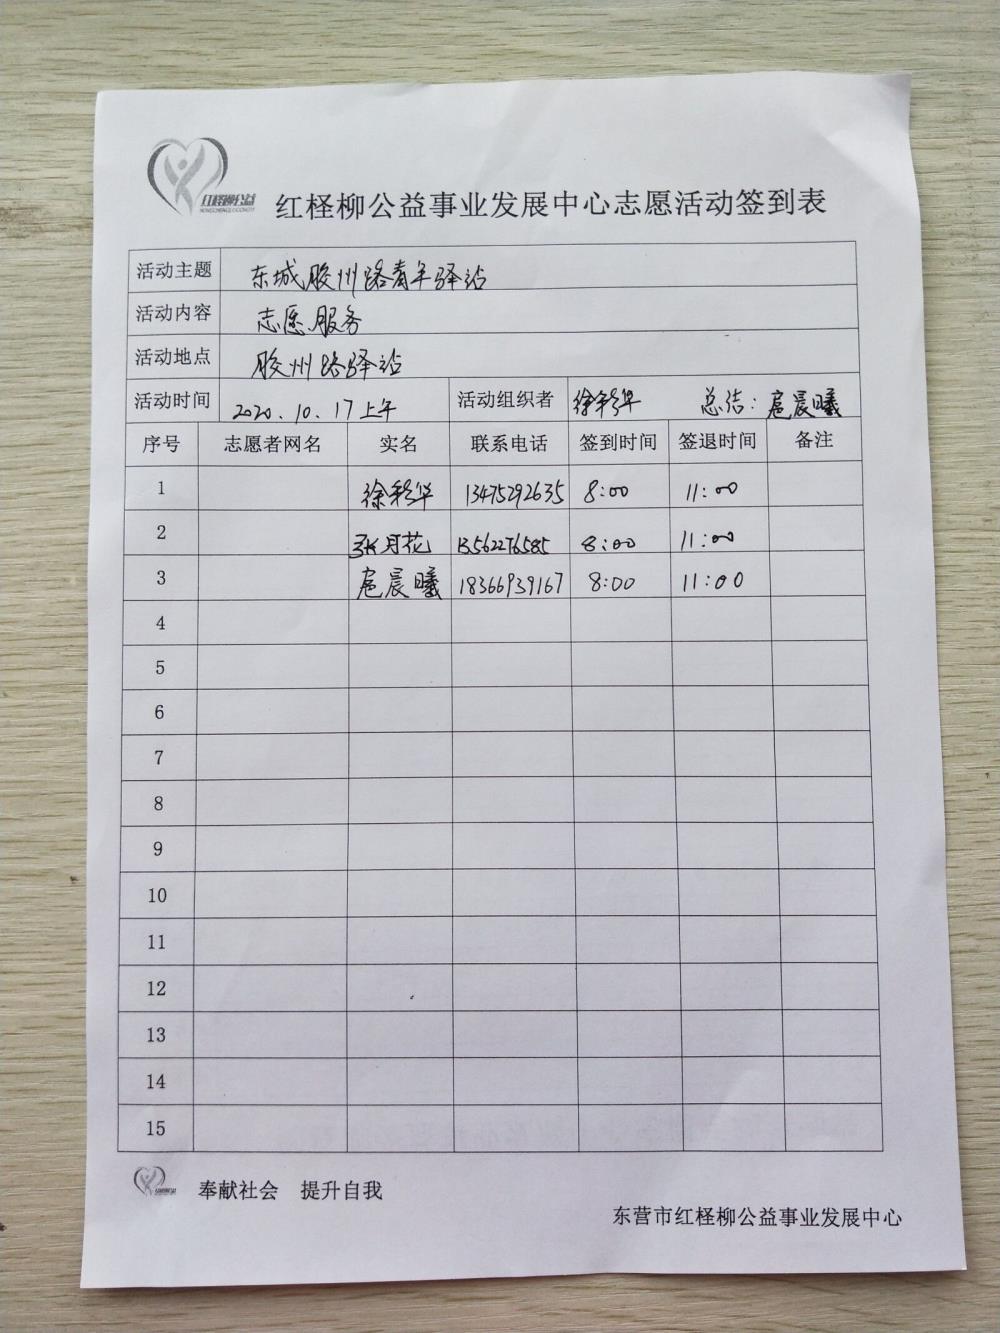 红柽柳公益
红柽柳公益事业发展中心志愿活动签到表
活动主题 东城胶州路青年驿站
活动内容 志愿服务
活动地点 胶州路驿站
活动时间 2020.10.17上午 活动组织者 徐彩华 总结:扈晨曦
序号 志愿者网名 实名 联系电话 签到时间 签退时间 备注
1 徐彩华 13475292635 8:00 11:00
2 张月花 13562276585 8:00 11:00
3 扈晨曦 18366939167 8:00 11:00
4
5
6
7
8
9
10
11
12
13
14
15
奉献社会 提升自我
东营市红柽柳公益事业发展中心